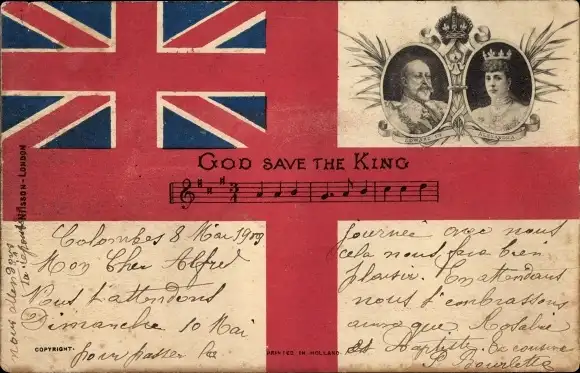 GOD SAVE THE KING
NISSON - LONDON
EDWARD VII
ALEXANDRA
Colombes 8 Mai 1903
Mon Cher Alfred
Nous t'attendons
Dimanche 10 Mai
pour passer la
journée avec nous
cela nous fera bien
plaisir. En attendant
nous t'embrassons
ainsi que Rosalie
et Baptiste. ta cousine
nous allons
COPYRIGHT.
PRINTED IN HOLLAND.